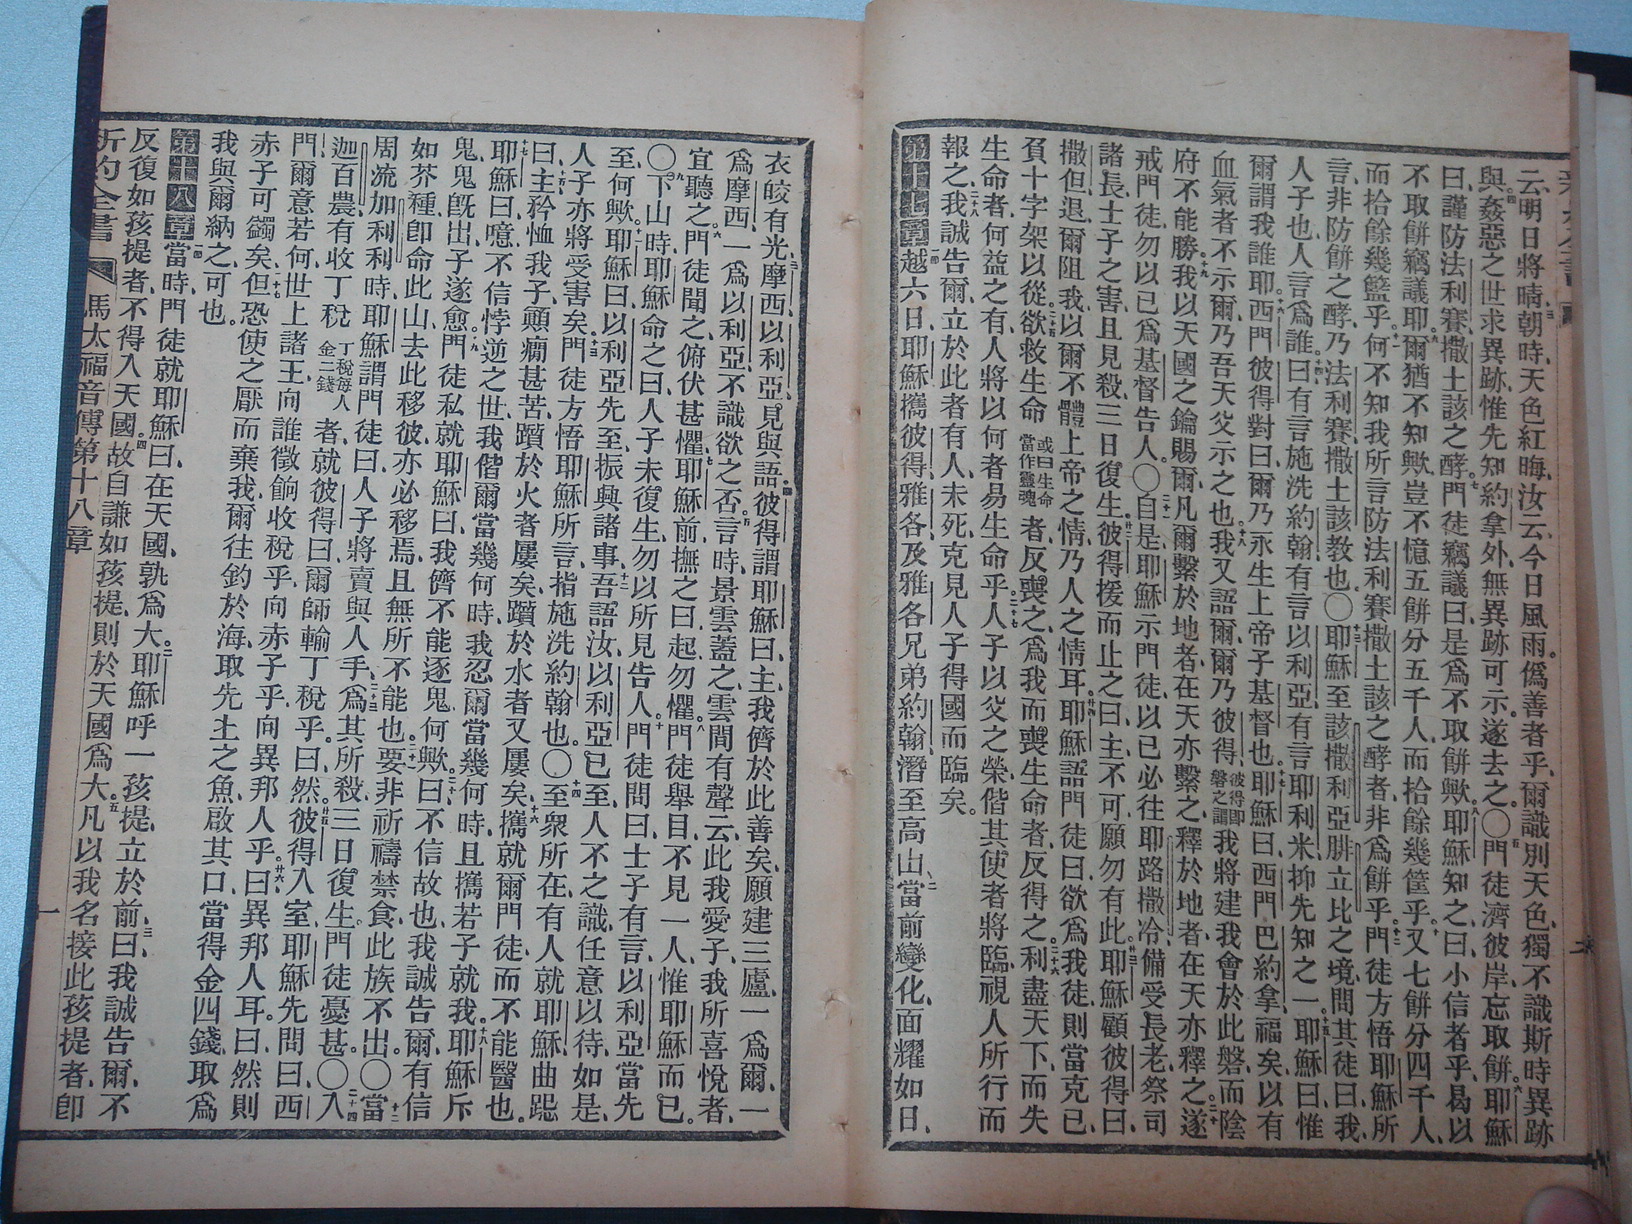 云、明日將晴、朝時、天色紅晦、汝云、今日風雨。僞善者乎、爾識別天色、獨不識斯時異跡
與。姦惡之世求異跡、惟先知約拿外、無異跡可示、遂去之。〇門徒濟彼岸、忘取餅、耶穌
曰、謹防法利賽撒土該之酵、門徒竊議曰、是爲不取餅歟、耶穌知之、曰、小信者乎、曷以
不取餅竊議耶。爾猶不知歟、豈不憶五餅分五千人、而拾餘幾筐乎、又七餅分四千人、
而拾餘幾籃乎。何不知我所言防法利賽撒土該之酵者、非爲餅乎。門徒方悟耶穌所
言、非防餅之酵、乃法利賽、撒土該教也。〇耶穌至該撒利亞腓立比之境、問其徒曰、我
人子也、人言爲誰。曰、有言施洗約翰、有言以利亞、有言耶利米抑先知之一。耶穌曰、惟
爾謂我誰耶。西門彼得對曰、爾乃永生上帝子基督也。耶穌曰、西門巴約拿、福矣、以有
血氣者不示爾、乃吾天父示之也。我又語爾、爾乃彼得、彼得卽磐之謂我將建我會於此磐、而陰
府不能勝。我以天國之鑰賜爾、凡爾繫於地者、在天亦繫之、釋於地者、在天亦釋之。遂
戒門徒、勿以已爲基督告人。〇自是耶穌示門徒、以已必往耶路撒冷、備受長老、祭司
諸長、士子之害、且見殺、三日復生。彼得援而止之曰、主不可、願勿有此。耶穌顧彼得曰、
撒但、退、爾阻我、以爾不體上帝之情、乃人之情耳。耶穌語門徒曰、欲爲我徒、則當克已、
負十字架以從。欲救生命或曰生命當作靈魂者、反喪之、爲我而喪生命者、反得之。利盡天下、而失
生命者、何益之有、人將以何者易生命乎。人子以父之榮、偕其使者將臨、視人所行而
報之。我誠告爾、立於此者、有人未死、克見人子得國而臨矣。
第十七章越六日、耶穌攜彼得、雅各、及雅各兄弟約翰、潛至高山、當前變化、面耀如日、
衣皎有光。摩西、以利亞見、與語。彼得謂耶穌曰、主、我儕於此善矣、願建三廬、一爲爾、一
爲摩西、一爲以利亞、不識欲之否。言時、景雲蓋之、雲間有聲云、此我愛子、我所喜悅者、
宜聽之。門徒聞之、俯伏甚懼。耶穌前撫之曰、起、勿懼。門徒舉目、不見一人、惟耶穌而已。
〇下山時、耶穌命之曰、人子未復生、勿以所見告人。門徒問曰、士子有言、以利亞當先
至、何歟。耶穌曰、以利亞先至、振興諸事。吾語汝、以利亞已至、人不之識、任意以待、如是、
人子亦將受害矣。門徒方悟耶穌所言、指施洗約翰也。〇至衆所在、有人就耶穌曲跽
曰、主、矜恤我子、顚癇甚苦、躓於火者屢矣、躓於水者又屢矣。攜就爾門徒、而不能醫也。
耶穌曰、噫、不信悖逆之世、我偕爾當幾何時、我忍爾當幾何時、且攜若子就我。耶穌斥
鬼、鬼旣出、子遂愈。門徒私就耶穌曰、我儕不能逐鬼、何歟。曰、不信故也、我誠告爾、有信
如芥種、卽命此山去此移彼、亦必移焉、且無所不能也。要非祈禱禁食、此族不出。〇當
周流加利利時、耶穌謂門徒曰、人子將賣與人手。爲其所殺、三日復生、門徒憂甚。〇入
迦百農、有收丁稅丁稅每人金二錢者、就彼得曰、爾師輸丁稅乎。曰、然。彼得入室、耶穌先問曰、西
門、爾意若何、世上諸王、向誰徵餉收稅乎、向赤子乎、向異邦人乎。曰、異邦人耳。曰、然則
赤子可蠲矣。但恐使之厭而棄我、爾往釣於海、取先上之魚、啟其口、當得金四錢、取爲
我與爾納之、可也。
第十八章當時、門徒就耶穌曰、在天國、孰爲大。耶穌呼一孩提、立於前曰、我誠告爾、不
反復如孩提者、不得入天國。故自謙如孩提、則於天國爲大。凡以我名接此孩提者、卽
新約全書 馬太福音傳第十八章 一